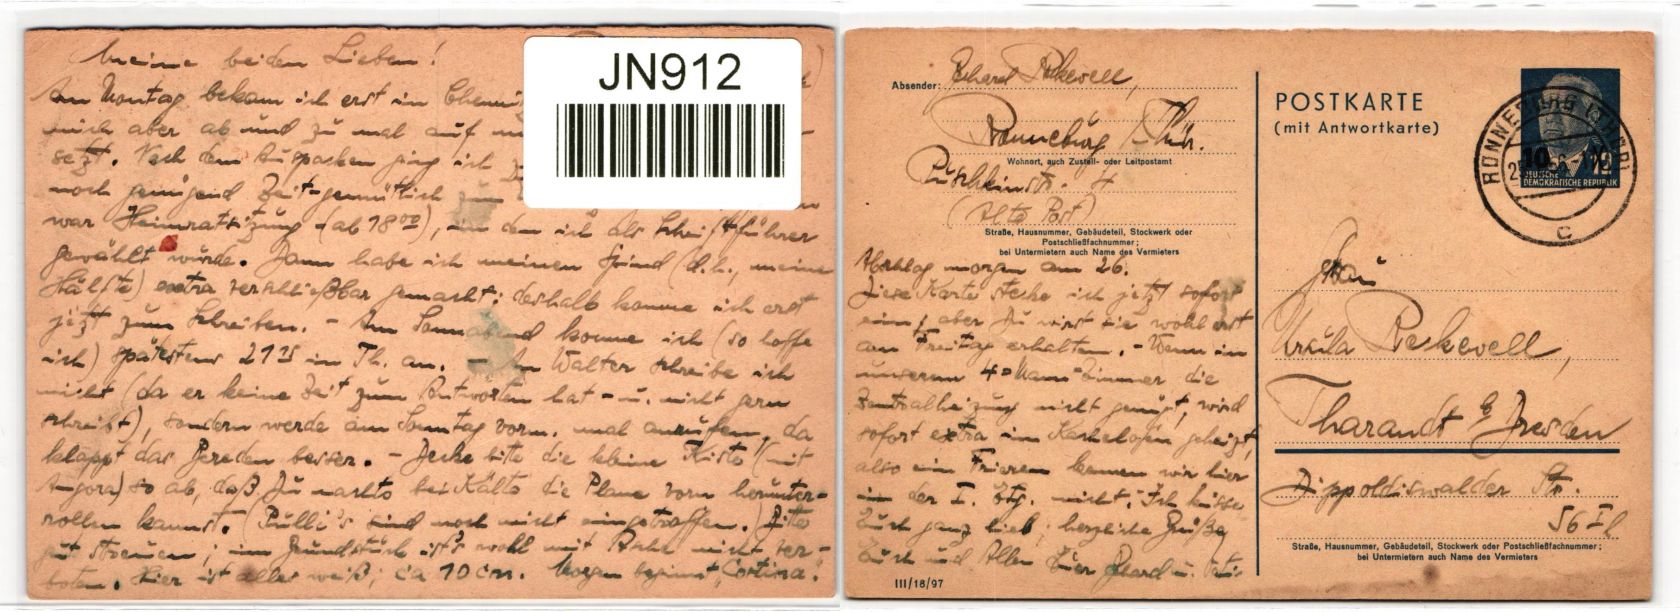 Meine beiden Lieben!
Am Montag bekam ich erst in
mich aber ab und zu mal auf
setzt. Nach dem Auspacken ging ich
noch genügend Zeit - gemütlich zum
war Heimratsitzung (ab 18⁰⁰), in den ich als Schriftführer
gewählt wurde. Dann habe ich meinen Spind (d.h., meine
Hälfte) extra verschließbar gemacht; deshalb komme ich erst
jetzt zum Schreiben. - Am Sonnabend komme ich (so hoffe
ich) spätestens 21 in Th. an. - An Walter schreibe ich
nicht (da er keine Zeit zum Antworten hat - u. nicht gern
schreibt), sondern werde am Sonntag vorm. mal anrufen, da
klappt das Gereden besser. - Decke bitte die kleine Kiste (mit
Angora) so ab, daß Du nachts bei Kälte die Plane vorn herunter-
rollen kannst. (Pulli's sind noch nicht eingetroffen.) Bitte
gut streuen; im Grundstück ist's wohl mit Asche nicht ver-
boten. Hier ist alles weiß; ca 10 cm. Morgen beginnt „Cortina".
JN912
Absender: Rekewell,
Ronneburg /Thür.
Wohnort, auch Zustell- oder Leitpostamt
Puschkinstr. 4
(Alte Post)
Straße, Hausnummer, Gebäudeteil, Stockwerk oder
Postschließfachnummer;
bei Untermietern auch Name des Vermieters
morgen am 26.
Diese Karte stecke ich jetzt sofort
ein, aber Du wirst sie wohl erst
am Freitag erhalten. - Wenn in
unserem 4-Mann-Zimmer die
Zentralheizung nicht genügt, wird
sofort extra im Kachelofen geheizt,
also ein Frieren kennen wir hier
in der I. Ztg. nicht. Ich küsse
Euch ganz lieb; herzliche Grüße
Euch und Allen Euer u.
III/18/97
POSTKARTE
(mit Antwortkarte)
RONNEBURG (THÜR)
c
10
DEUTSCHE
DEMOKRATISCHE REPUBLIK
Frau
Ursula Rekewell,
Tharandt b Dresden
Dippoldiswalder Str.
56 I
Straße, Hausnummer, Gebäudeteil, Stockwerk oder Postschließfachnummer;
bei Untermietern auch Name des Vermieters